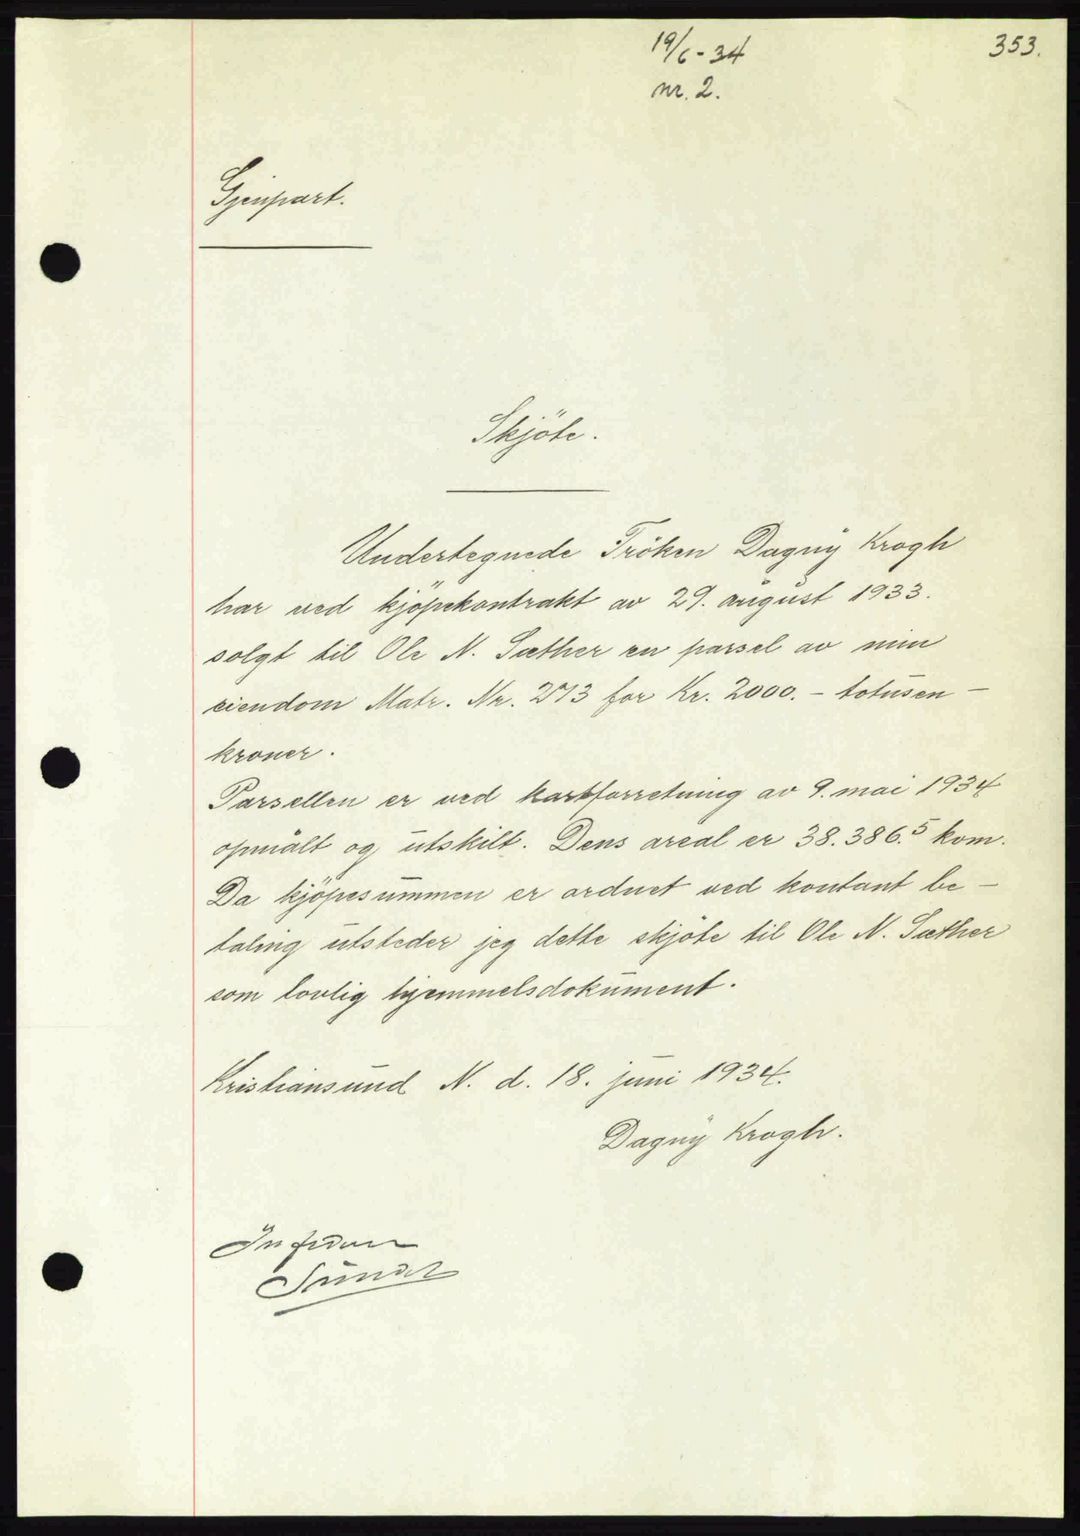 19/6-34
353.
nr. 2.
Gjenpart.
Skjöte.
Undertegnede Fröken Dagny Krogh
har ved kjöpekontrakt av 29. august 1933.
solgt til Ole N. Sæther en parsel av min
eiendom Matr. Nr. 273 for Kr. 2000.- totusen -
kroner.
Parsellen er ved kartforretning av 9. mai 1934
opmålt og utskilt. Dens areal er 38.386.5 kvm.
Da kjöpesummen er ordnet ved kontant be -
taling utsteder jeg dette skjöte til Ole N. Sæther
som lovlig hjemmelsdokument.
Kristiansund N. d. 18. juni 1934.
Dagny Krogh.